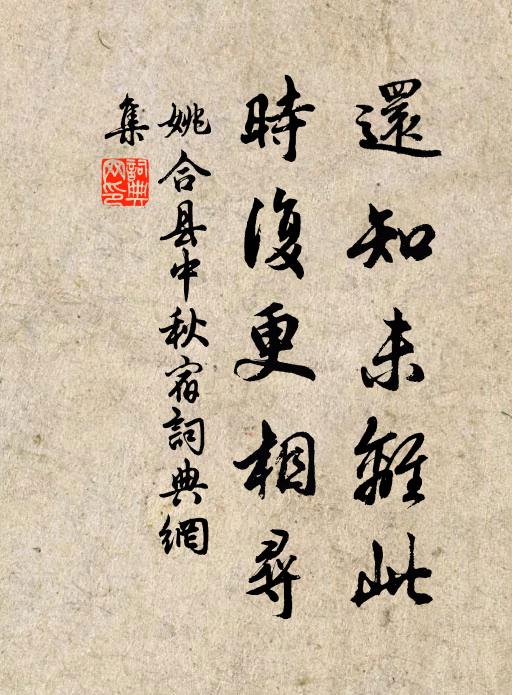 還知未離此
時復更相尋
姚合县中秋宿詞典網
集
詞典網印